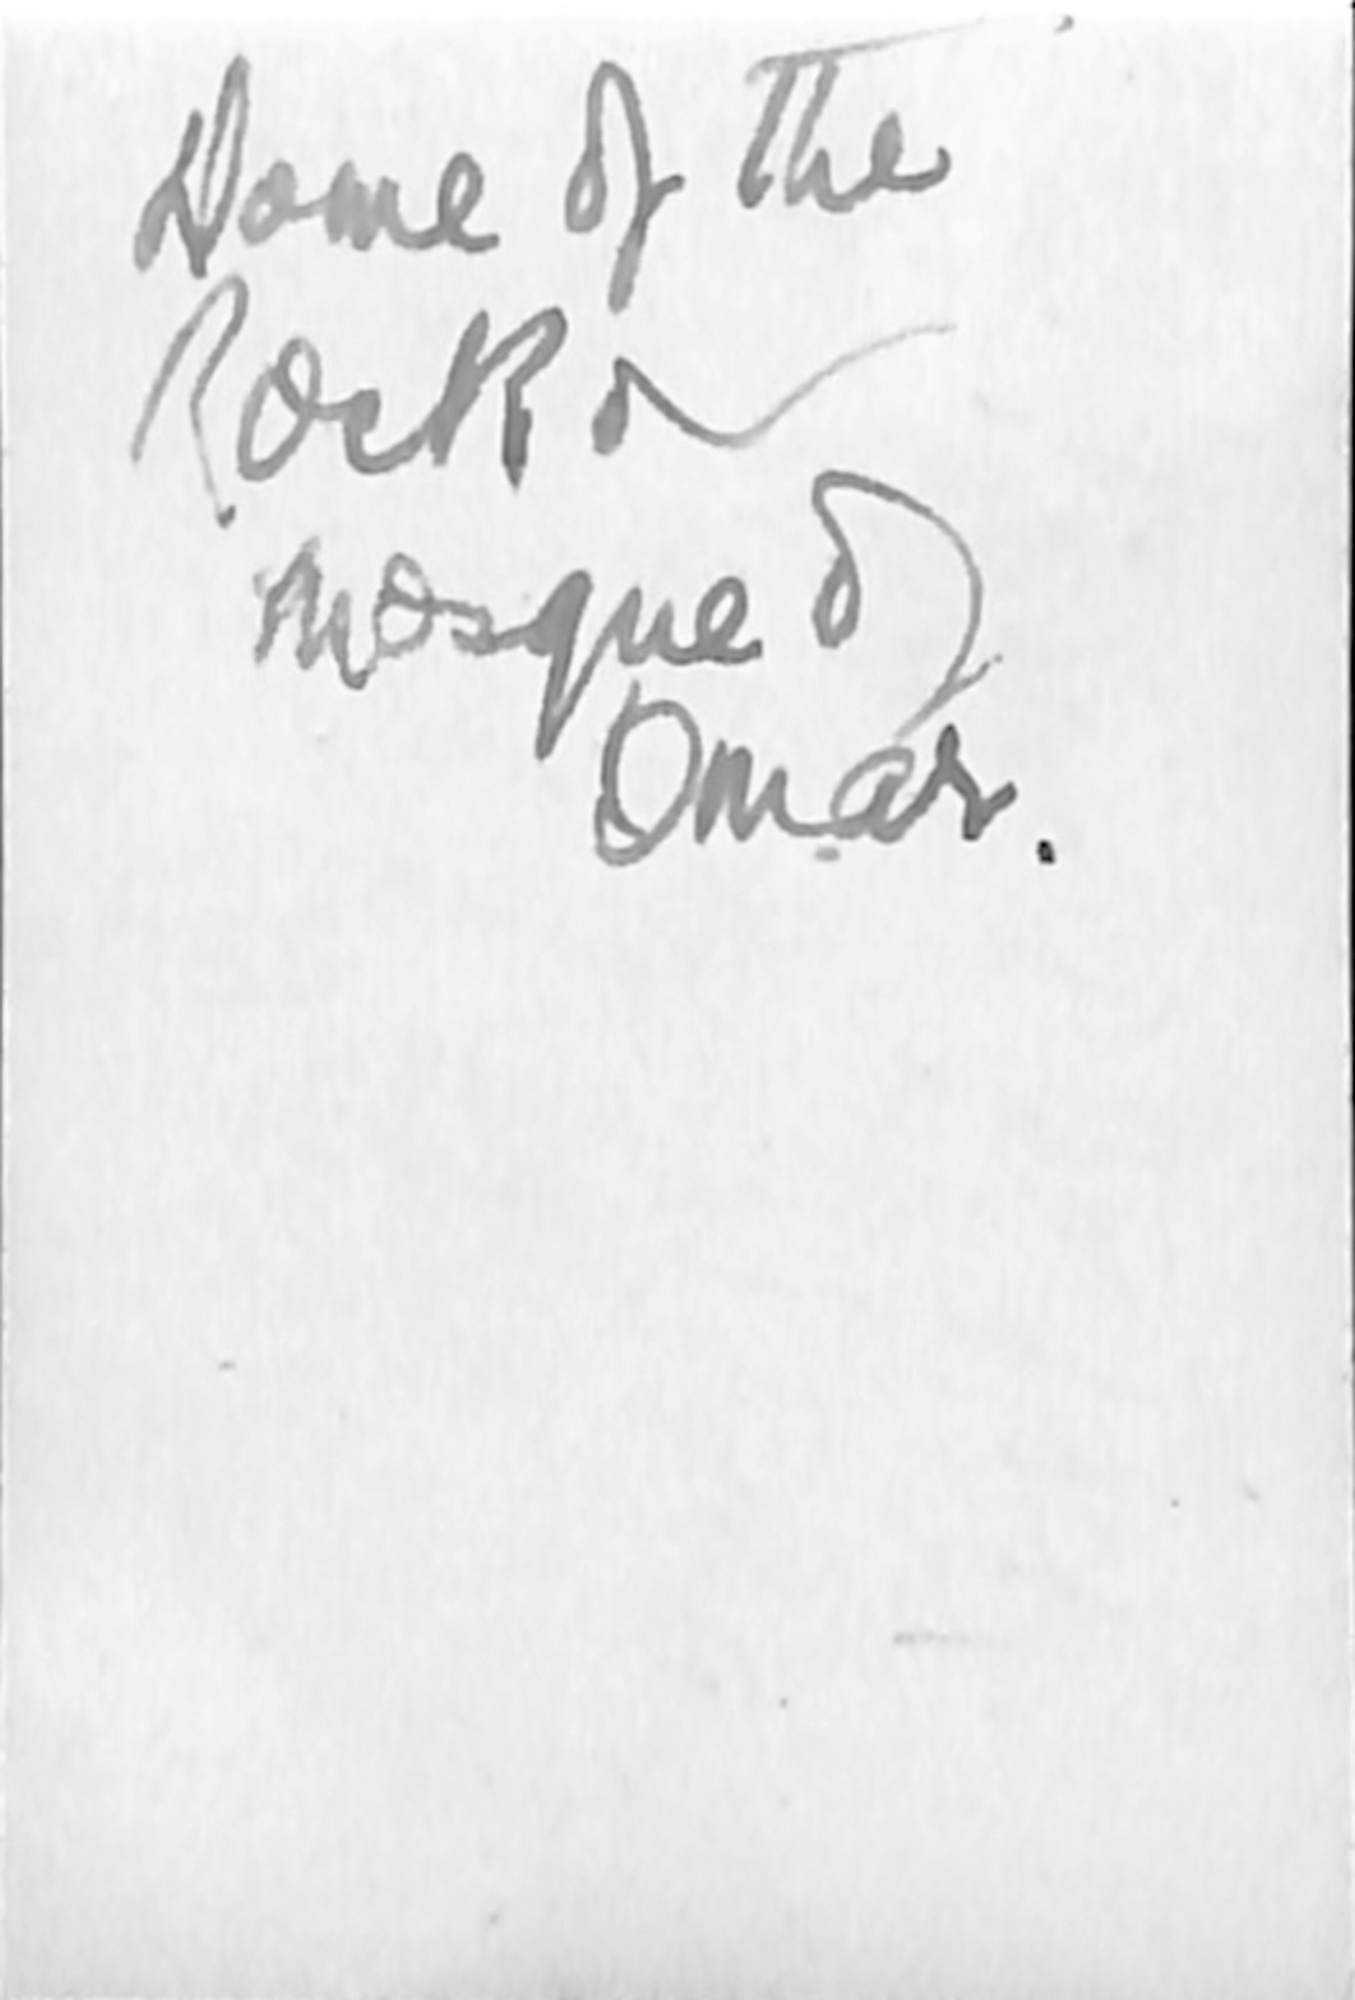 Dome of the
Rock or
Mosque of
Omar.